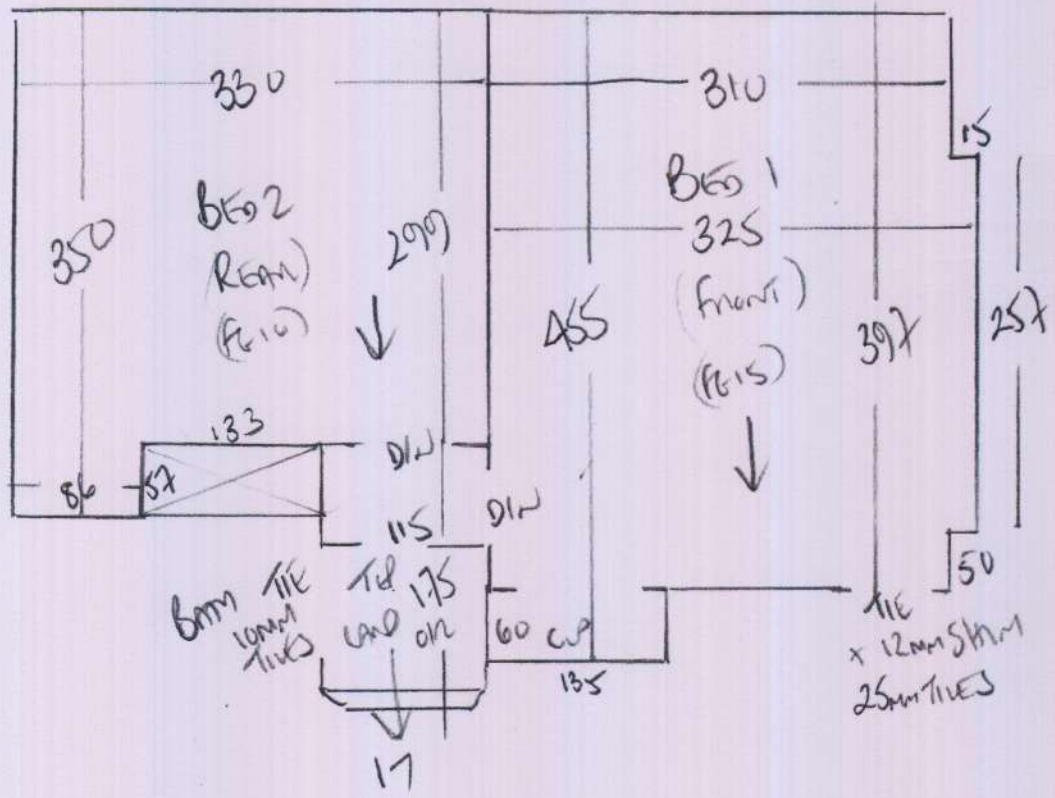 330
310
15
BED 2
REAR)
(FE10)
350
299
BED 1
325
(FRONT)
(FE15)
455
397
257
133
DIN
86
57
DIN
115
50
BATH TIE
10MM
TILES
175
60 CUP
135
TIE
x 12MM
25MM TILES
17